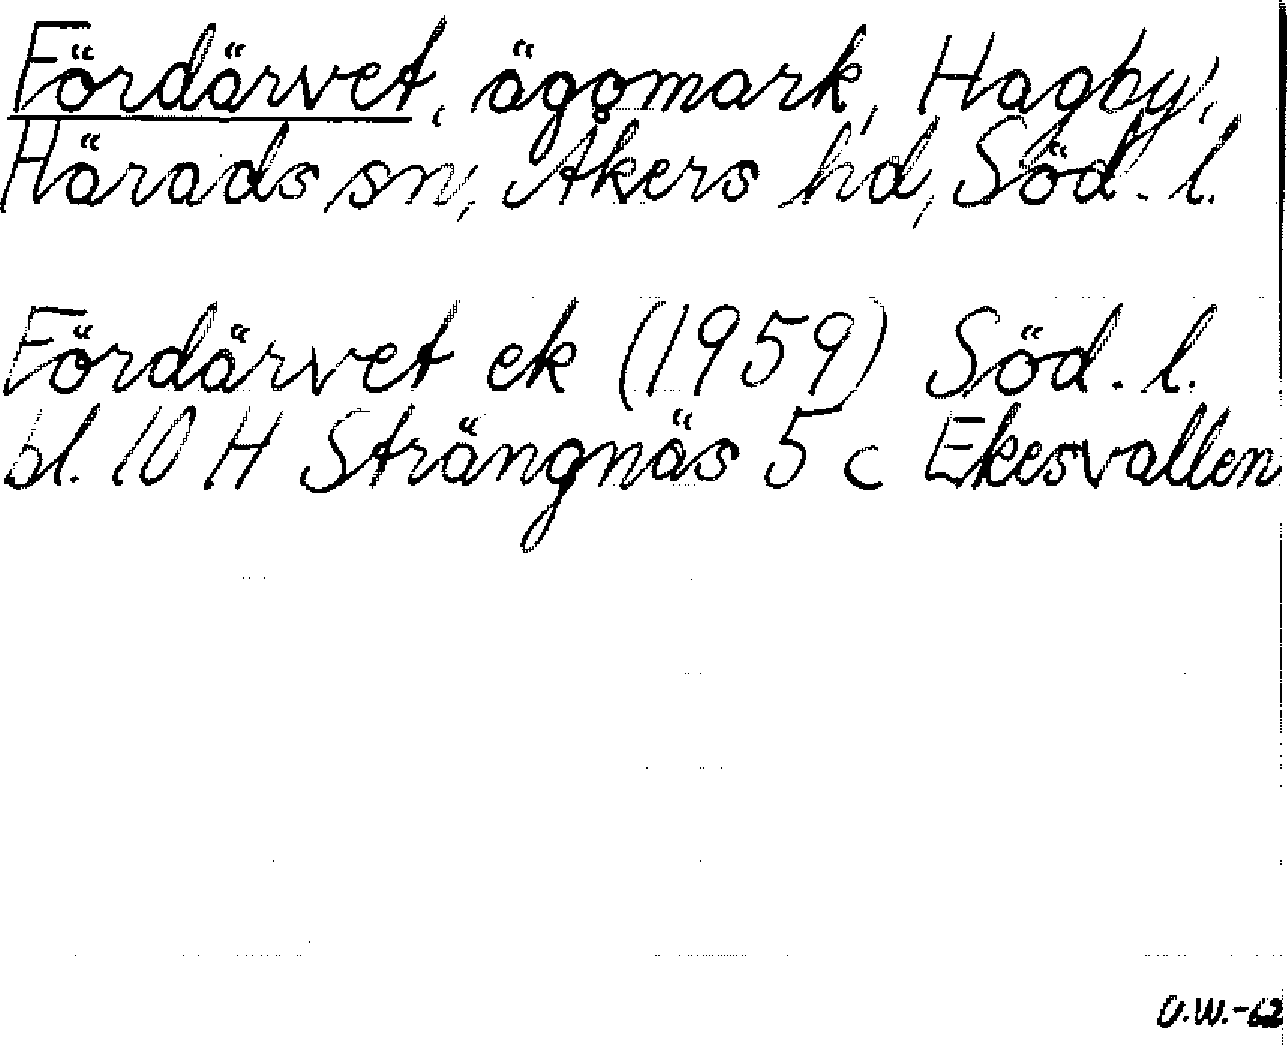 Fördärvet, ägomark, Hagby,
Härads sn, Åkers hd, Söd. l.
Fördärvet ek (1959) Söd. l.
bl. 10 H Strängnäs 5 c Ekesvallen
O.W.-62